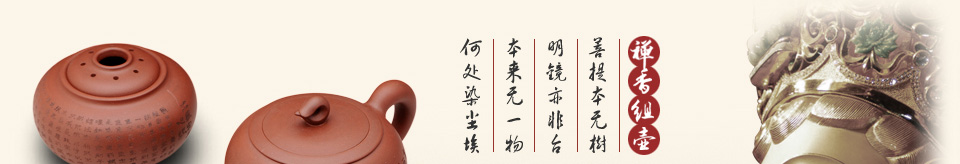 禅香组壶
菩提本无樹
明镜亦非台
本来无一物
何处染尘埃